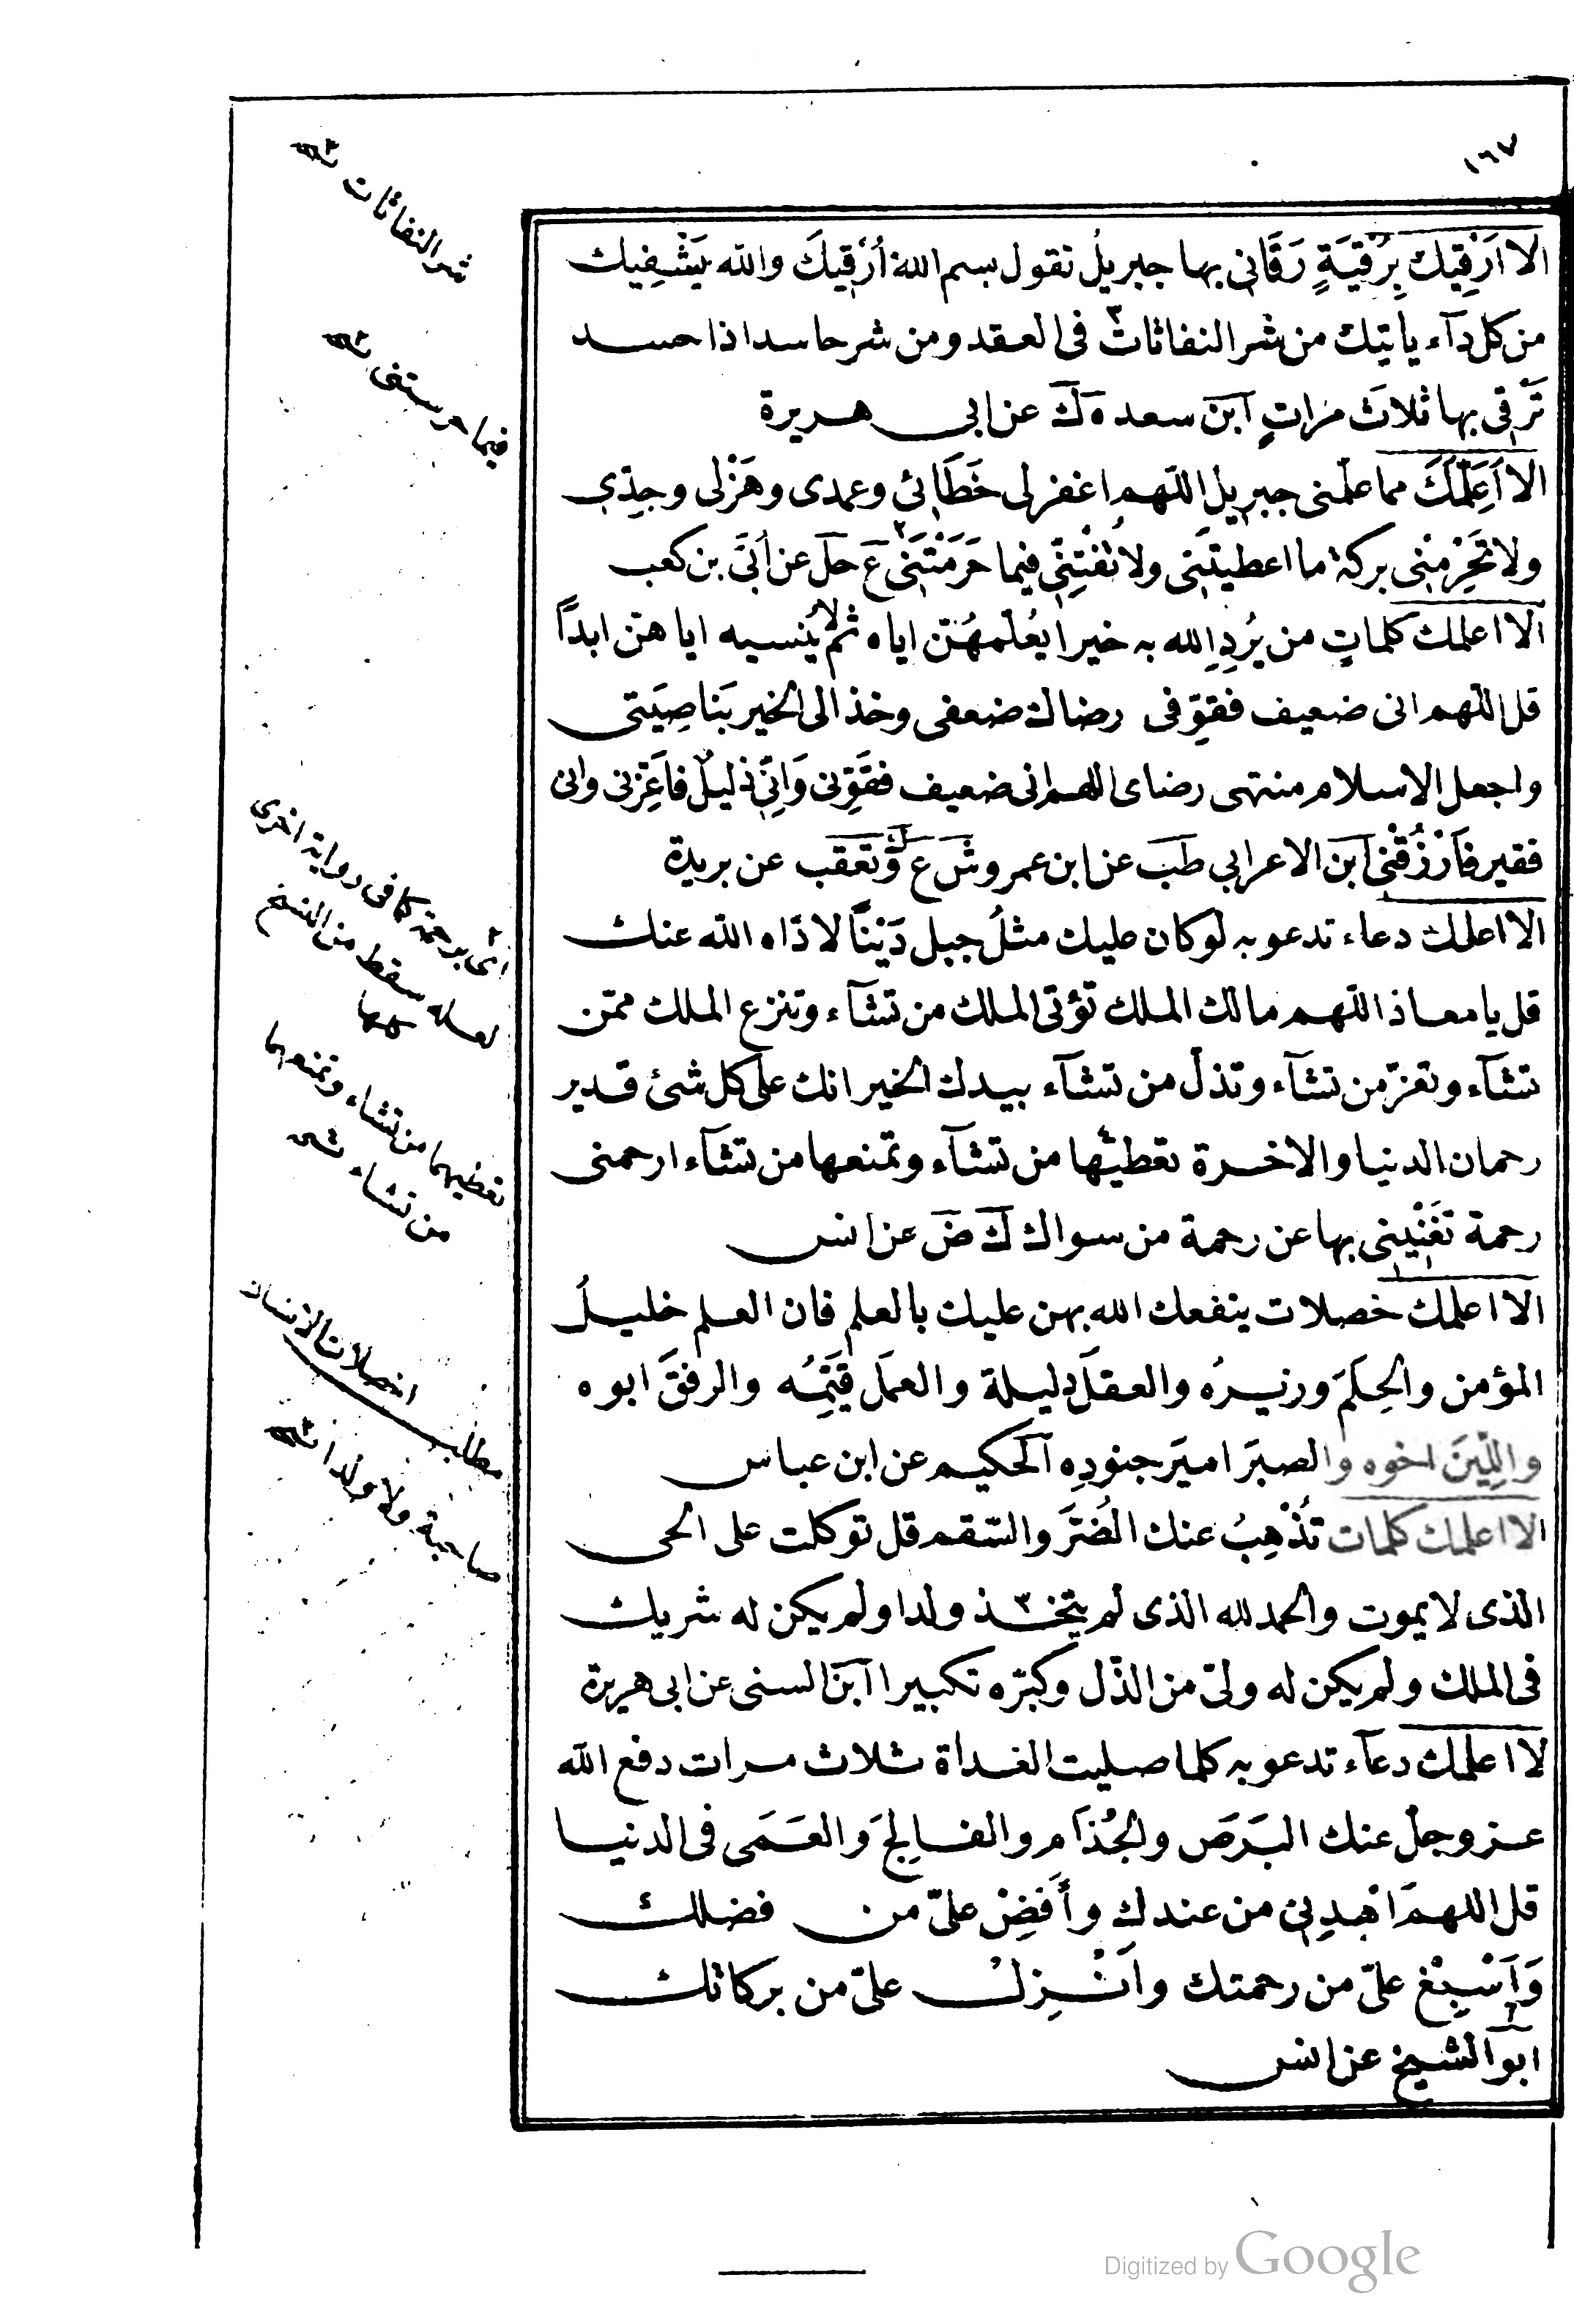 ١٦٧
الا اَرْقِيك بِرُقْيَةٍ رَقَانِى بها جبريلُ تقول بسم الله اُرْقِيكَ والله يَشْفِيك
من كل دآء يأتيك من شر النفاثات٣ فى العقد ومن شر حاسد اذا حسد
تَرْقِى بها ثلاثَ مَراتٍ ابن سعد ه ك عن ابى هريرة
الا اُعَلِّمُكَ مما علّمنى جبريل اللّهم اغفر لى خَطَائِى وعمدى وهَزْلى وجِدّى
ولا تَحْرِمْنِى بركة ما اعطيتَنِى ولا تُفْتِنِّى فيما حَرَمْتَنِى٢ ع حل عن اُبَىّ بن كعب
الا اعلمك كلماتٍ من يُرِدِ الله به خيرا يُعَلّمهُنّ اياه ثم لا يُنسيه اياهنّ ابدًا
قل اللّهم انى ضعيف فقوِّ فى رضاك ضعفى وخذ الى الخير بَناصِيَتى
واجعل الاسلام منتهى رضاى اللهم انى ضعيف فقَوِّنى وَاِنِّى ذليلٌ فاَعِزّنى وانى
فقير فَارْزُقْنِى ابن الاعرابى طب عن ابن عمرو ش ع ك وتعقب عن بريدة
الا اعلمك دعاء تدعو به لو كان عليك مثلُ جبل دَيْنًا لادّاه الله عنك
قل يا معاذ اللّهم مالك الملك تؤتى الملك من تشآء وتنزع الملك ممّن
تشآء وتعزّ من تشآء وتذلّ من تشآء بيدك الخير انك على كل شئ قدير
رحمان الدنيا والاخرة تعطيها٤ من تشآء وتمنعها من تشآء ارحمنى
رحمة تُغْنِينِى بها عن رحمة من سواك ك ض عن انس
الا اعلمك خصلات ينفعك الله بهن عليك بالعلم فان العلم خليلُ
المؤمن والحِلمَ وزيرُه والعقلَ دليله والعمَل قَيِّمُه والرفقَ ابوه
واللِّينَ اخوه والصبرَ اميرَ جنودِه الحكيم عن ابن عباس
الا اعلمك كلمات تُذْهِبُ عنك الضُرَّ والسّقم قل توكلت على الحى
الذى لا يموت والحمد لله الذى لم يتخذ٣ ولدا ولم يكن له شريك
فى الملك ولم يكن له ولىّ من الذّل وكبّره تكبيرا ابن السنى عن ابى هريرة
لا اعلمك دعآء تدعو به كلما صليت الغداة ثلاث مرات دفع الله
عزوجلّ عنك البَرصَ والجُذام والفالِجَ والعَمَى فى الدنيا
قل اللهمّ اهْدِنِى من عندك وأَفِضْ علىّ من فضلك
وَاَسْبِغْ علىّ من رحمتك واَنْزِلْ علىّ من بركاتك
ابو الشيخ عن انس
شر النفاثات
فيما
اى برحمة كما فى رواية اخرى
لعله سقط من النسخ
سهها
تعطيهما من تشاء وتمنعهما
من تشاء
مطلب
صاحبة ولا ولدا
Digitized by Google